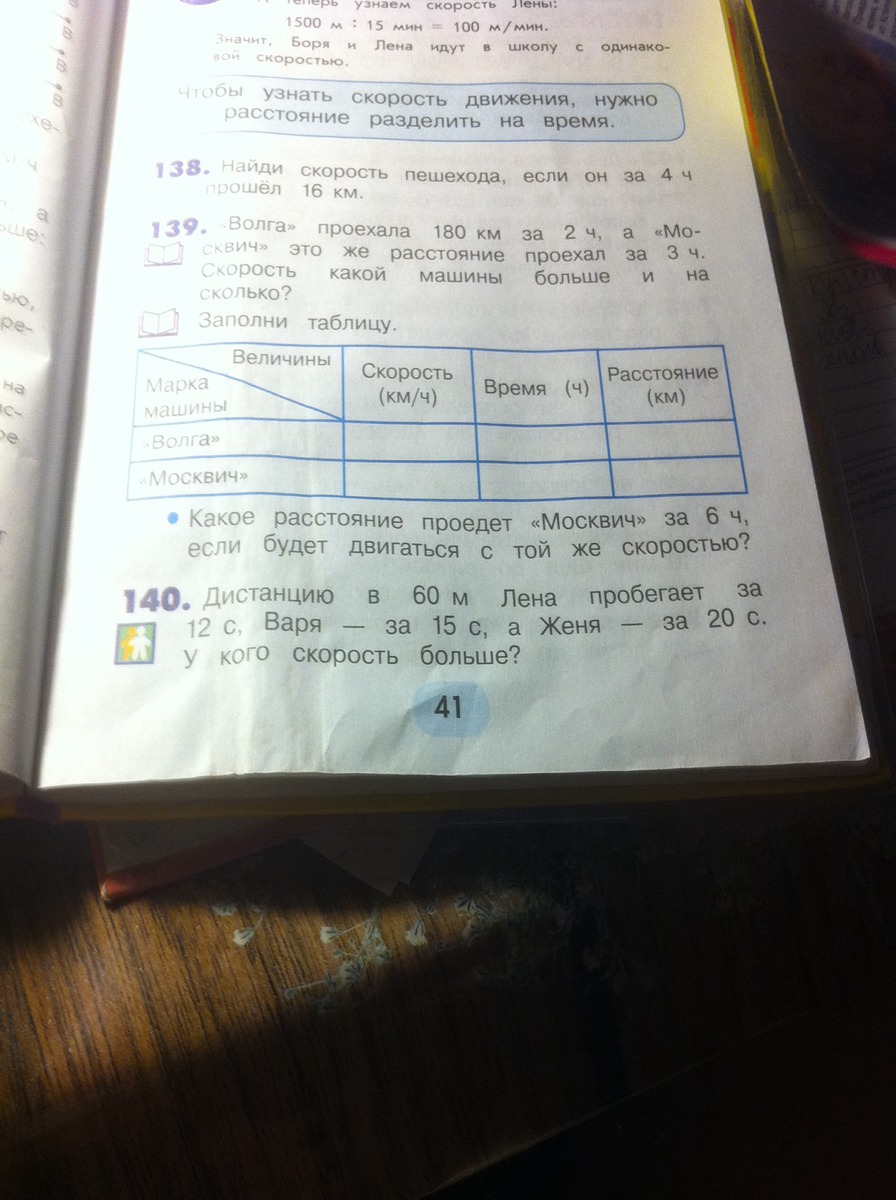 теперь узнаем скорость Лены:
1500 м : 15 мин = 100 м/мин.
Значит, Боря и Лена идут в школу с одинако-
вой скоростью.
Чтобы узнать скорость движения, нужно
расстояние разделить на время.
138. Найди скорость пешехода, если он за 4 ч
прошёл 16 км.
139. «Волга» проехала 180 км за 2 ч, а «Мо-
сквич» это же расстояние проехал за 3 ч.
Скорость какой машины больше и на
сколько?
Заполни таблицу.
Величины
Марка
машины
Скорость
(км/ч)
Время (ч)
Расстояние
(км)
«Волга»
«Москвич»
• Какое расстояние проедет «Москвич» за 6 ч,
если будет двигаться с той же скоростью?
140. Дистанцию в 60 м Лена пробегает за
12 с, Варя — за 15 с, а Женя — за 20 с.
у кого скорость больше?
41